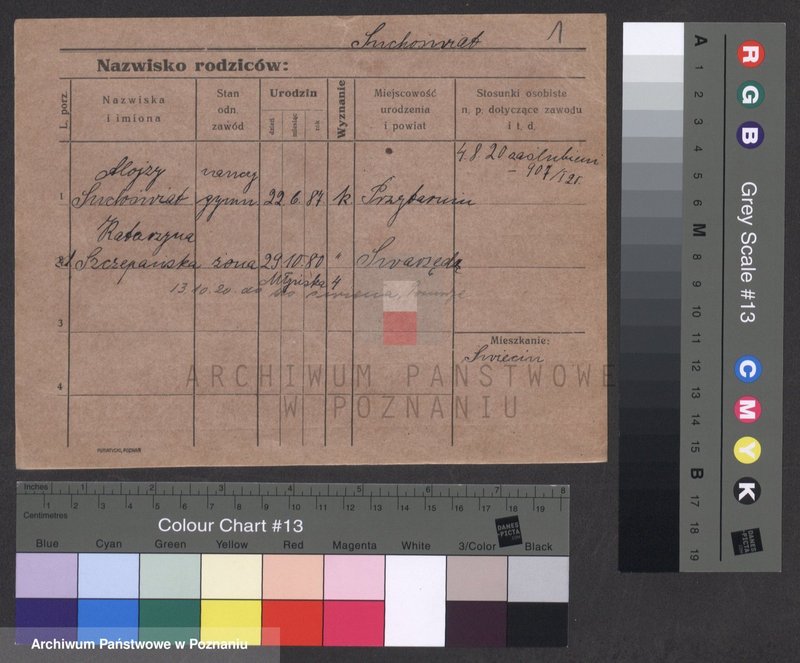 Suchoswiat 1
Nazwisko rodziców:
L. porz.
Nazwiska
i imiona
Stan
odn.
zawód
Urodzin
dzień
miesiąc
rok
Wyznanie
Miejscowość
urodzenia
i powiat
Stosunki osobiste
n. p. dotyczące zawodu
i t. d.
4.8 20 zaślubieni
- 907/20.
Alojzy naucz
1 Suchoswiat gymn. 22 6. 87 k
Katarzyna
2 Szczepańska zona 29 10. 80 "
13.10.20. do
3
Mieszkanie:
4
ARCHIWUM PAŃSTWOWE
W POZNANIU
Inches 1 2 3 4 5 6 7 8
Centimetres 1 2 3 4 5 6 7 8 9 10 11 12 13 14 15 16 17 18 19
Colour Chart #13
DANES
-PICTA
.COM
Blue Cyan Green Yellow Red Magenta White 3/Color Black
Archiwum Państwowe w Poznaniu
A 1 2 3 4 5 6 M 8 9 10 11 12 13 14 15 B 17 18 19
R G B
Grey Scale #13
C M Y K
DANES
-PICTA
.COM